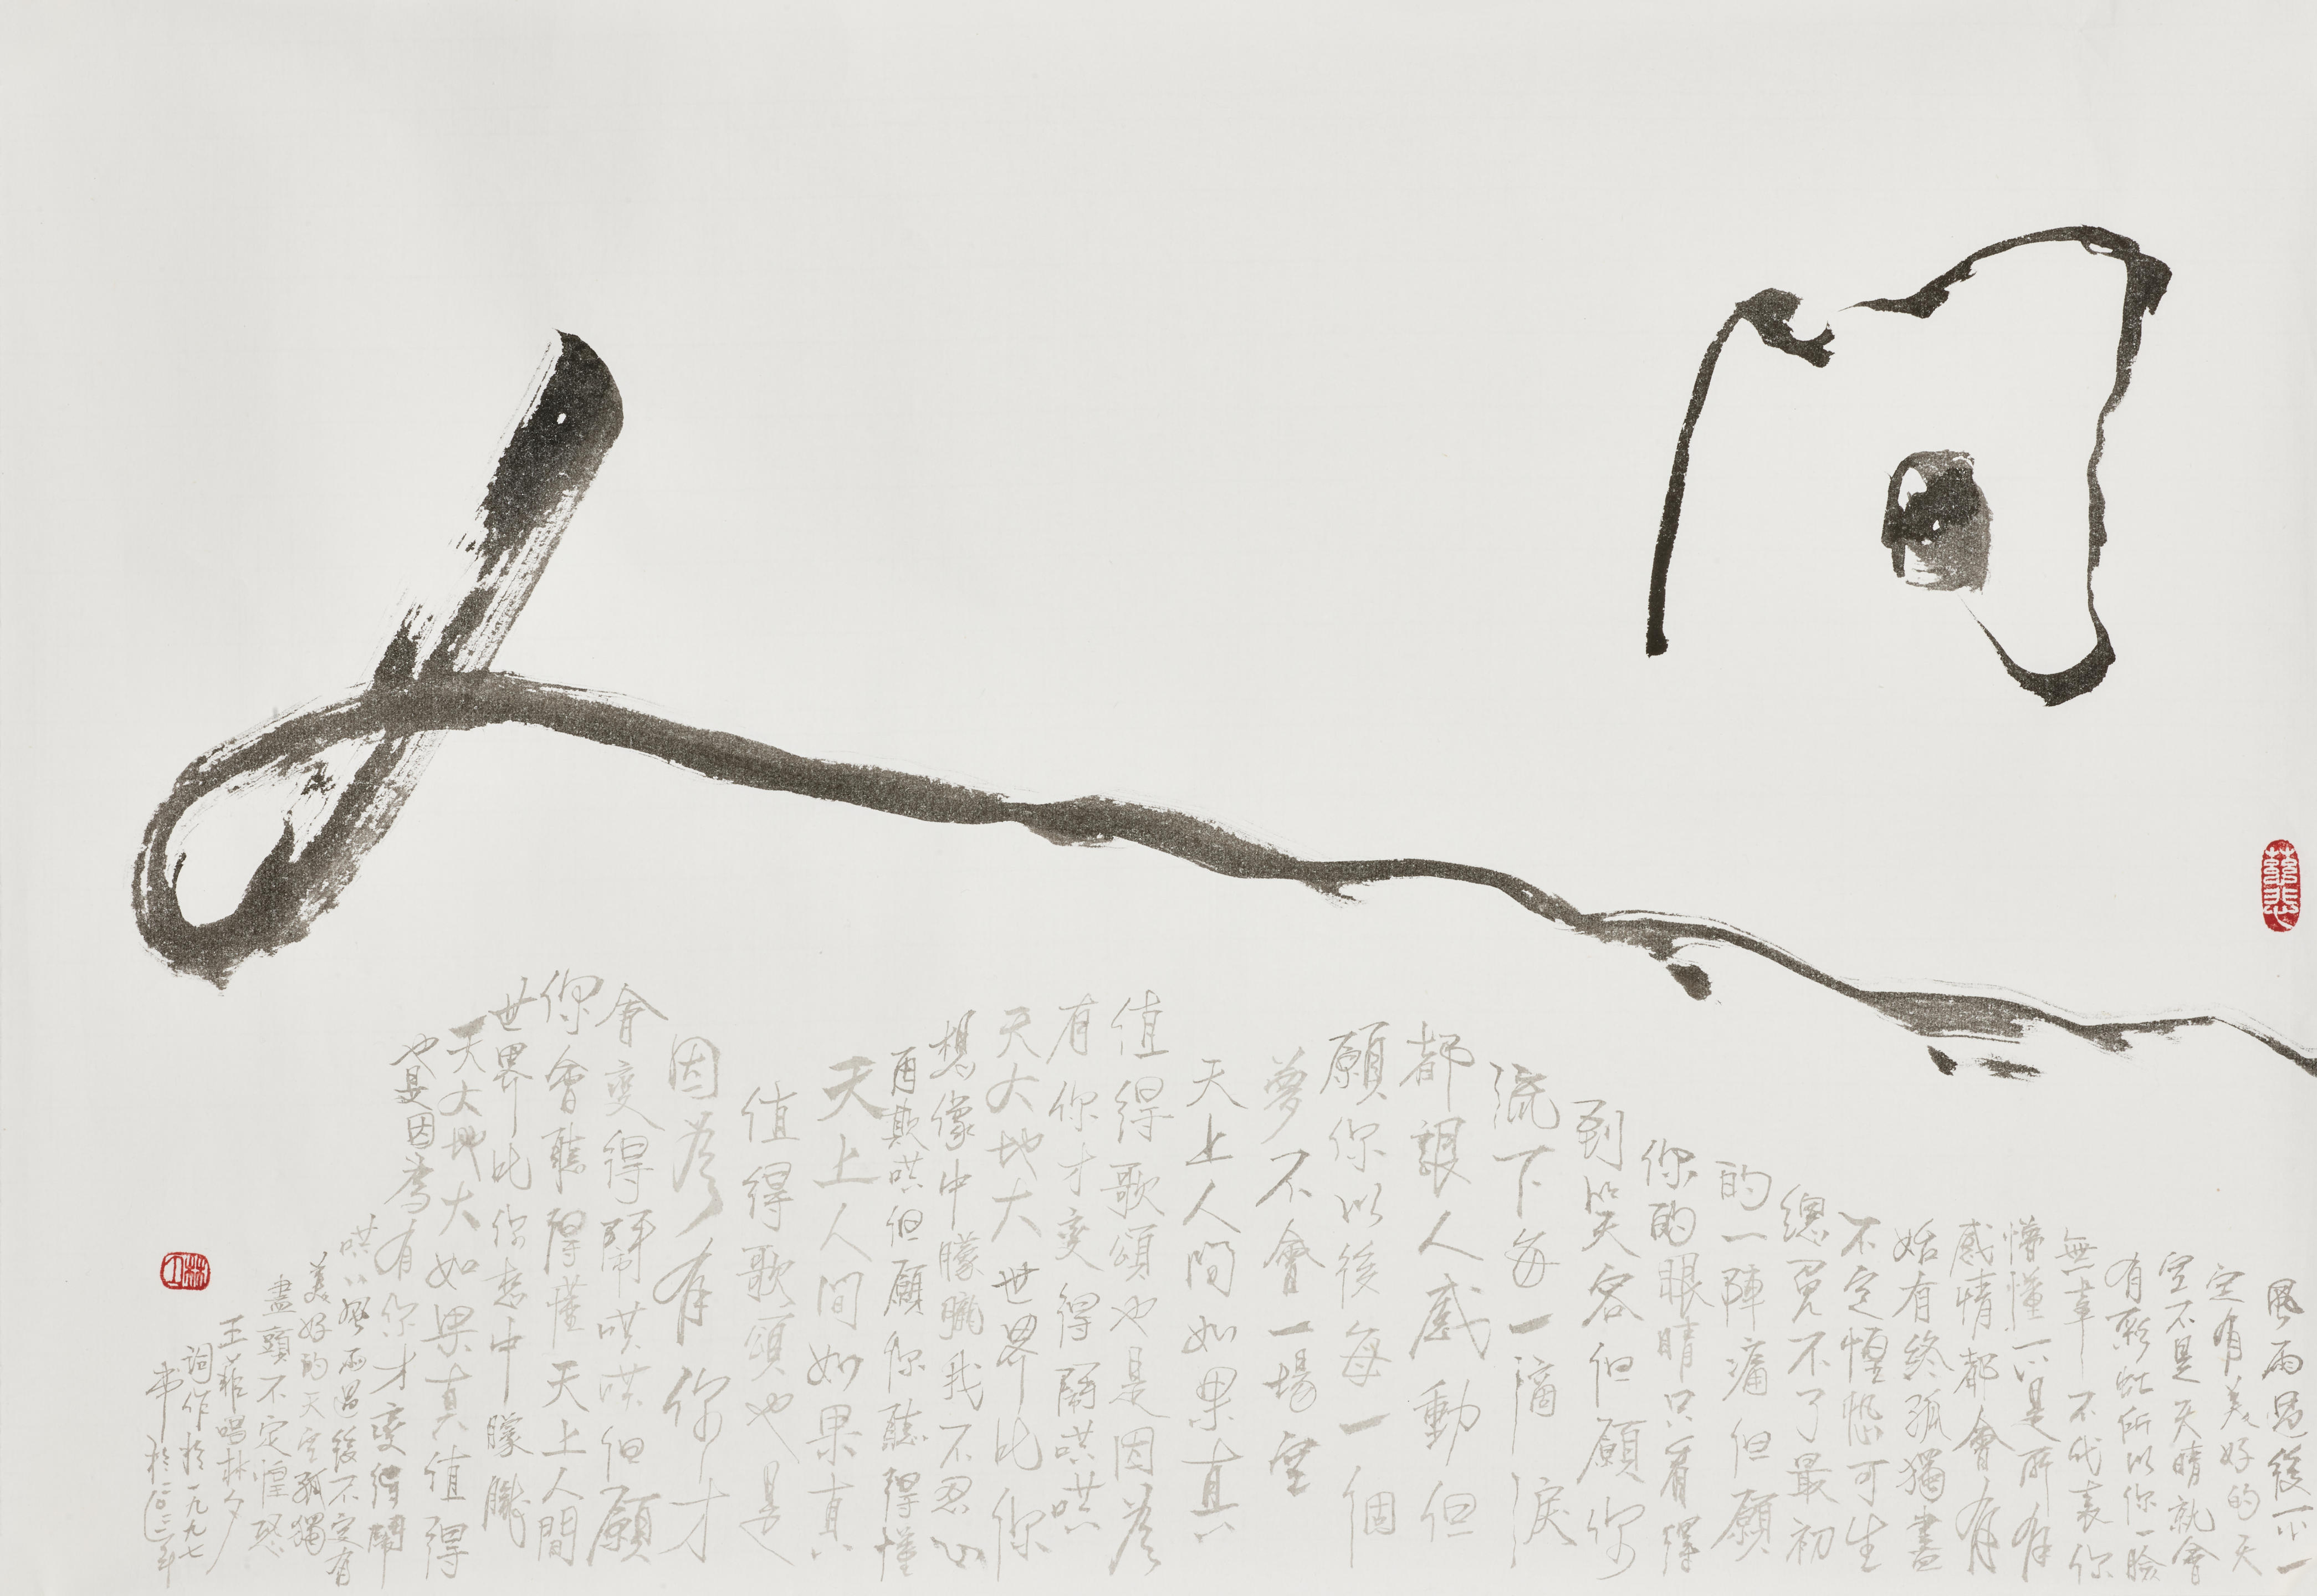 人间
慈悲
風雨過後不一
定有美好的天
空不是天晴就會
有彩虹所以你一臉
無辜不代表你
懵懂不是所有
感情都會有
始有終孤獨盡
不定惶恐可生
總免不了最初
的一陣痛但願
你的眼睛只看得
到笑容但願你
流下每一滴淚
都讓人感動但
願你以後每一個
夢不會一場空
天上人间如果真
值得歌頌也是因為
有你才變得鬧哄哄
天大地大世界比你
想像中朦朧我不忍心
再欺哄但願你聽得懂
天上人間如果真
值得歌頌也是
因為有你才
會變得鬧哄哄但願
你會聽得懂天上人間
世界比你想中朦朧
天大地大如果真值得
也是因為有你才變得鬧
哄哄風雨過後不定有
美好的天空孤獨
盡頭不定惶恐
王菲唱林夕
詞作於一九九七
書於年